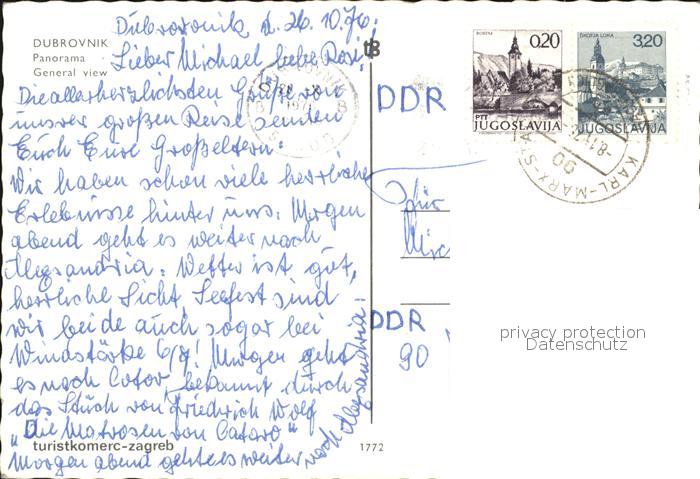 Dubrovnik d. 26. 10. 76.
DUBROVNIK
Panorama
General view
Lieber Michael liebe Rosi!
Die allerherzlichsten Grüße von
unsrer großen Reise senden
Euch Eure Großeltern.
Wir haben schon viele herrliche
Erlebnisse hinter uns. Morgen
abend geht es weiter nach
Alegsandria. Wetter ist gut,
herrliche Sicht, Seefest sind
wir beide auch sogar bei
Windstärke 6/7! Morgen geht
es nach Cotor, bekannt durch
das Stück von Friedrich Wolf
„Die Matrosen von Cataro“
turistkomerc-zagreb
Morgen abend geht es weiter
nach Alegsandria.
1772
tB
DDR
für
DDR
90
BOHINJ
0,20
PTT
JUGOSLAVIJA
ŠKOFJA LOKA
3,20
JUGOSLAVIJA
KARL-MARX-STA
90
privacy protection
Datenschutz